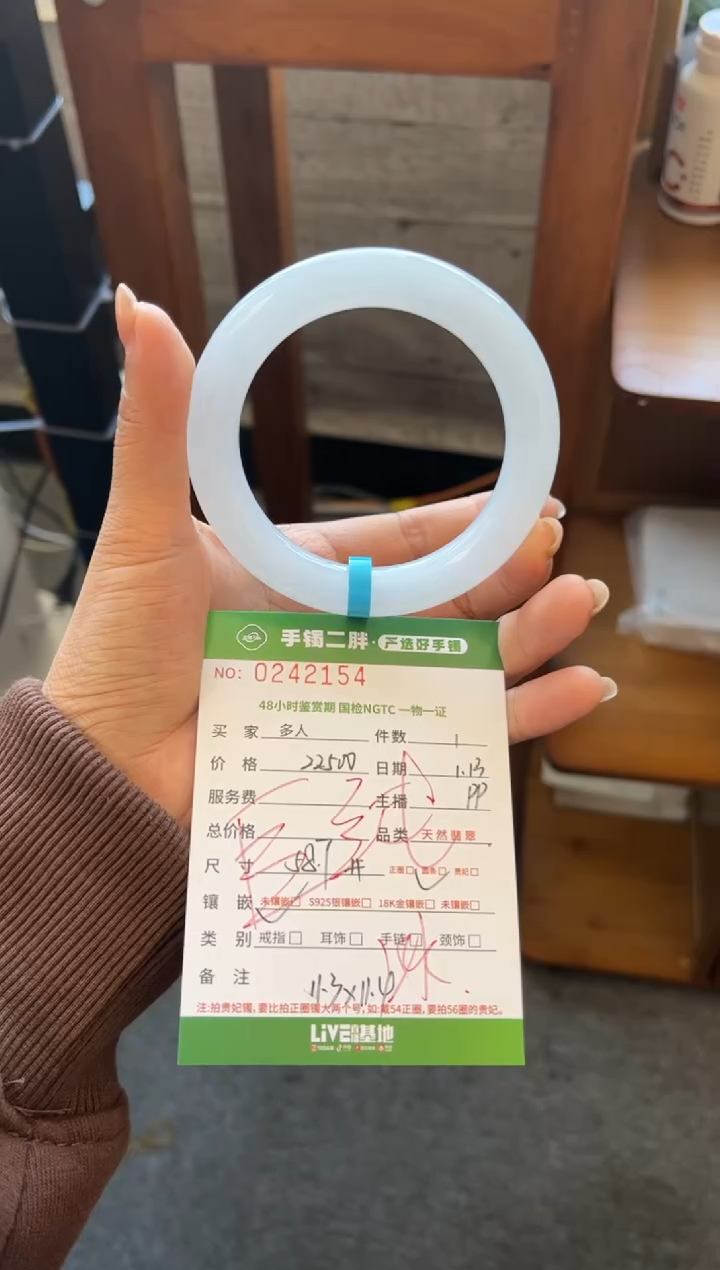 手镯二胖·严选好手镯
NO: 0242154
48小时鉴赏期 国检NGTC 一物一证
买 家 多人 件数 1
价 格 22500 日期 1.13
服务费 主播 PP
总价格 品类 天然翡翠
尺 寸 58.7 正圈□ 圆条□ 贵妃□
镶 嵌 未镶嵌□ S925银镶嵌□ 18K金镶嵌□ 未镶嵌□
类 别 戒指□ 耳饰□ 手链□ 颈饰□
备 注 11.3×11.4
注:拍贵妃镯,要比拍正圈镯大两个号,如:戴54正圈,要拍56圈的贵妃。
LIVE基地